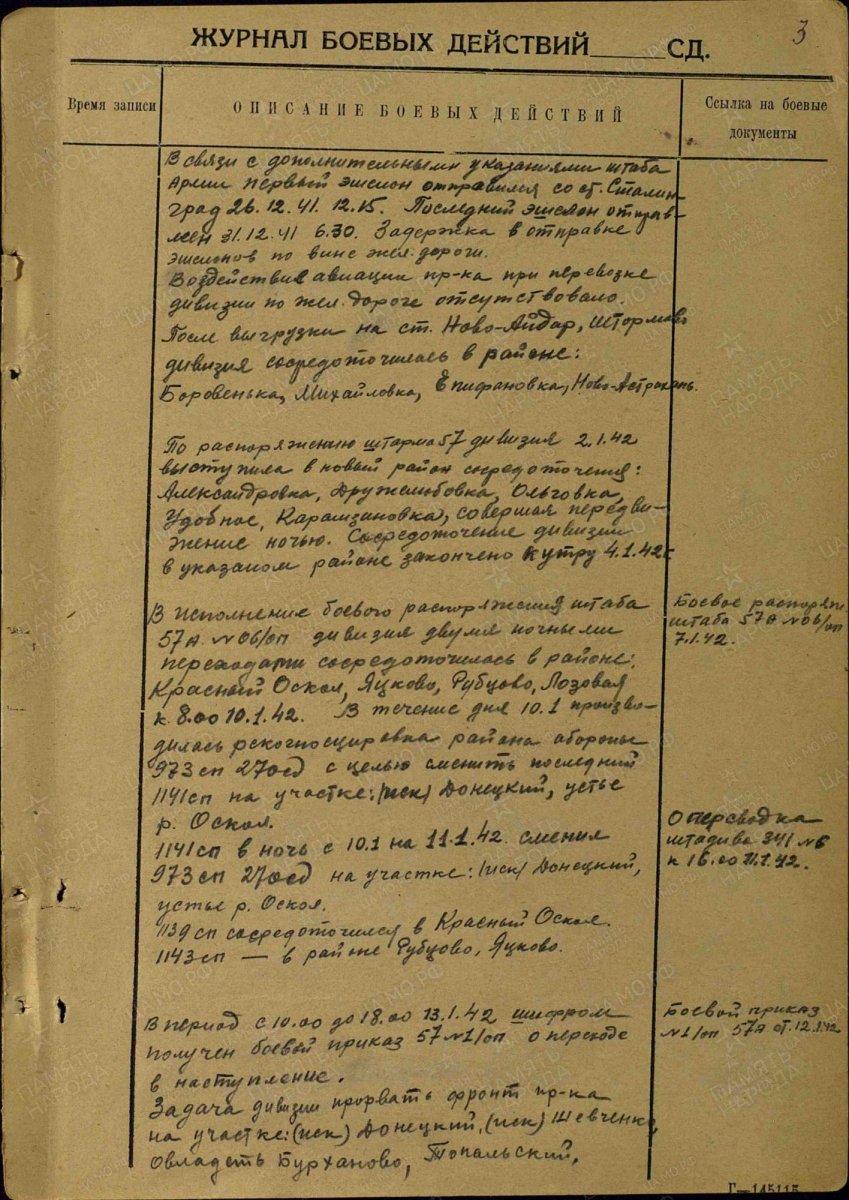 3
ЖУРНАЛ БОЕВЫХ ДЕЙСТВИЙ______СД.
Время записи
ОПИСАНИЕ БОЕВЫХ ДЕЙСТВИЙ
Ссылка на боевые
документы
В связи с дополнительными указаниями штаба
Армии первый эшелон отправился со ст. Сталин-
град 26.12.41. 12.15. Последний эшелон отправ-
лен 31.12.41 6.30. Задержка в отправке
эшелонов по вине жел. дороги.
Воздействие авиации пр-ка при перевозке
дивизии по жел. дороге отсутствовало.
После выгрузки на ст. Ново-Айдар, Штормово
дивизия сосредоточилась в районе:
Боровенька, Михайловка, Епифановка, Ново-Астрахань.
По распоряжению штарма 57 дивизия 2.1.42
выступила в новый район сосредоточения:
Александровка, Дружелюбовка, Ольговка,
Удобное, Карамзиновка, совершая передви-
жение ночью. Сосредоточение дивизии
в указаном районе закончено к утру 4.1.42г
В исполнение боевого распоряжения штаба
57А №06/оп дивизия двумя ночными
переходами сосредоточилась в районе:
Красный Оскол, Яцково, Рубцово, Лозовая
к 8.00 10.1.42. В течение дня 10.1 произво-
дилась рекогносцировка района обороны
973сп 270сд с целью сменить последний
1141сп на участке: /иск/ Донецкий, устье
р. Оскол.
1141сп в ночь с 10.1 на 11.1.42. сменил
973сп 270сд на участке: /иск/ Донецкий,
устье р. Оскол.
1139сп сосредоточился в Красный Оскол.
1143сп — в районе Рубцово, Яцково.
В период с 10.00 до 18.00 13.1.42 шифром
получен боевой приказ 57 №1/оп о переходе
в наступление.
Задача дивизии прорвать фронт пр-ка
на участке: (иск) Донецкий, (иск) Шевченко,
овладеть Бурханово, Топальский,
Боевое распоряж.
штаба 57А №06/оп
7.1.42.
Оперсводка
штадива 341 №6
к 16.00 11.1.42.
Боевой приказ
№1/оп 57А от 12.1.42
Г—145115